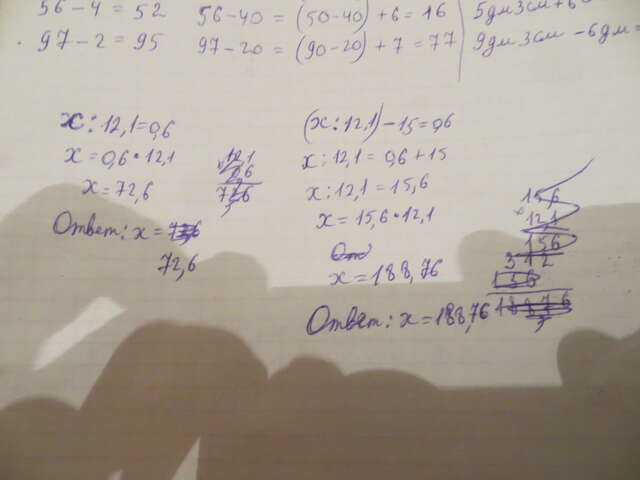 56-4=52
97-2=95
56-40=(50-40)+6=16
97-20=(90-20)+7=77
5дм 3см+6
9дм 3см-6дм=
x:12,1=0,6
x=0,6·12,1
x=72,6
12,1
0,6
726
Ответ: x=
72,6
(x:12,1)-15=0,6
x:12,1=0,6+15
x:12,1=15,6
x=15,6·12,1
От
x=188,76
Ответ: x=188,76
15,6
12,1
156
312
156
18876